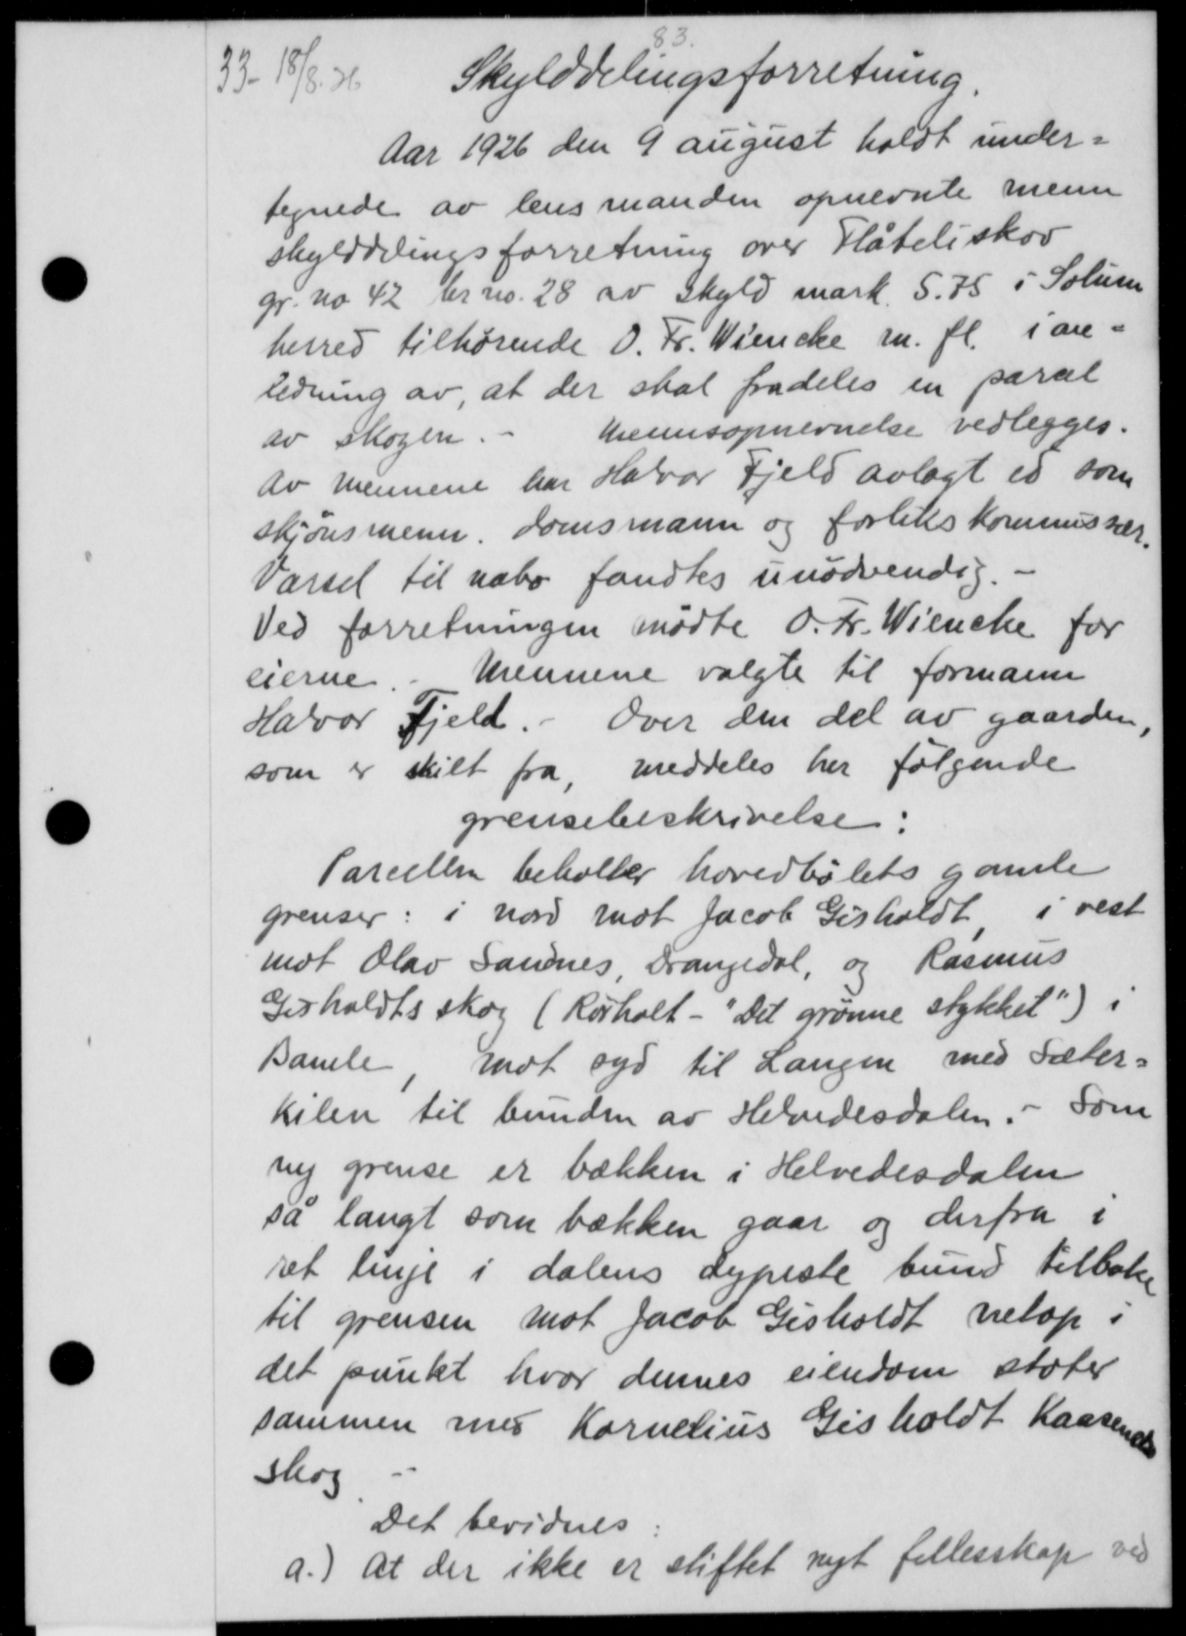 83.
33 - 18/8.26 Skylddelingsforretning.
Aar 1926 den 9 august holdt under=
tegnede av lensmanden opnevnte menn
skylddelingsforretning over Flåteliskov
gr. no 42 br no. 28 av skyld mark 5.75 i Solum
herred tilhørende O. Fr. Wiencke m. fl. i an=
ledning av, at der skal fradeles en parcel
av skogen. - Mennsopnevnelse vedlegges.
Av mennene har Halvor Fjeld avlagt ed som
skjönsmenn. domsmann og forlikskommissær.
Varsel til nabo fandtes unödvendig. -
Ved forretningen mødte O. Fr. Wiencke for
eierne. - Mennene valgte til formann
Halvor Fjeld. - Over den del av gaarden,
som er skilt fra, meddeles her følgende
grensebeskrivelse:
Parcellen beholder hovedbölets gamle
grenser: i nord mot Jacob Gisholdt, i vest
mot Olav Sandnes, Drangedal, og Rasmus
Gisholdts skog (Rörholt - "Det grönne stykket") i
Bamle, mot syd til Langen med Sæter=
kilen til bunden av Helvedesdalen. - Som
ny grense er bækken i Helvedesdalen
så langt som bækken gaar og derfra i
ret linje i dalens dypeste bund tilbake
til grensen mot Jacob Gisholdt netop i
det punkt hvor dennes eiendom støter
sammen med Kornelius Gisholdt Kaasends
skog. -
Det bevidnes:
a.) At der ikke er stiftet nyt fellesskap ved